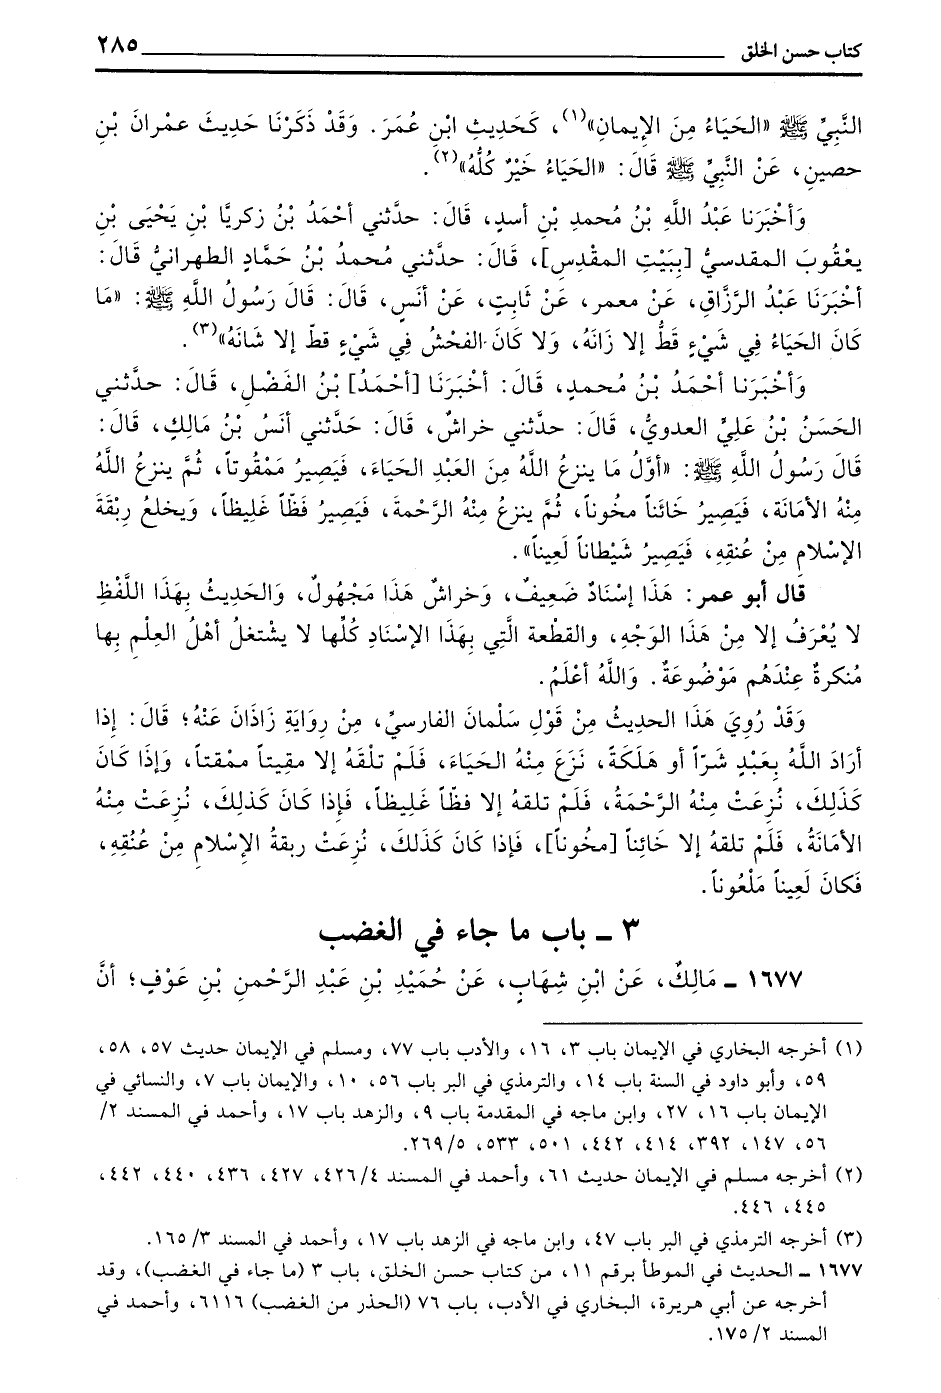 كتاب حسن الخلق ٢٨٥
النَّبِيِّ ﷺ «الحَيَاءُ مِنَ الإِيمانِ»(١)، كَحَدِيثِ ابْنِ عُمَرَ. وَقَدْ ذَكَرْنَا حَدِيثَ عمْرانَ بْنِ
حصينٍ، عَنْ النَّبِيِّ ﷺ قَالَ: «الحَيَاءُ خَيْرٌ كُلُّهُ»(٢).
وَأَخْبَرَنا عَبْدُ اللَّهِ بْنُ مُحمدِ بْنِ أسدٍ، قَالَ: حدَّثني أحْمَدُ بْنُ زكريَّا بْنِ يَحْيَى بْنِ
يعْقُوبَ المقدسيُّ [بِبَيْتِ المقْدِسِ]، قَالَ: حدَّثني مُحمدُ بْنُ حَمَّادٍ الطهرانيُّ قَالَ:
أخْبَرَنَا عَبْدُ الرَّزَّاقِ، عَنْ معمرٍ، عَنْ ثَابِتٍ، عَنْ أنَسٍ، قَالَ: قَالَ رَسُولُ اللَّهِ ﷺ: «مَا
كَانَ الحَيَاءُ فِي شَيْءٍ قَطُّ إلا زَانَهُ، وَلا كَانَ الفحْشُ فِي شَيْءٍ قطّ إلا شَانَهُ»(٣).
وَأَخْبَرَنا أحْمَدُ بْنُ مُحمدٍ، قَالَ: أخْبَرَنَا [أحْمَدُ] بْنُ الفَضْلِ، قَالَ: حدَّثني
الحَسَنُ بْنُ عَلِيٍّ العدويُّ، قَالَ: حدَّثني خراشٌ، قَالَ: حَدَّثني أنَسُ بْنُ مَالِكٍ، قَالَ:
قَالَ رَسُولُ اللَّهِ ﷺ: «أوَّلُ مَا ينزعُ اللَّهُ مِنَ العَبْدِ الحَيَاءَ، فَيَصِيرُ مَمْقُوتاً، ثُمَّ ينزعُ اللَّهُ
مِنْهُ الأمَانَةَ، فَيَصِيرُ خَائناً مخُوناً، ثُمَّ ينزعُ مِنْهُ الرَّحْمةَ، فَيَصِيرُ فَظّاً غَلِيظاً، وَيخلعُ رِبْقَةَ
الإسْلامِ مِنْ عُنقِهِ، فَيَصِيرُ شَيْطاناً لَعِيناً».
قال أبو عمر: هَذَا إسْنَادٌ ضَعِيفٌ، وَخراشٌ هَذَا مَجْهُولٌ، وَالحَدِيثُ بِهَذَا اللَّفْظِ
لا يُعْرَفُ إلا مِنْ هَذَا الوَجْهِ، والقطْعة الَّتِي بِهَذَا الإسْنَادِ كُلِّها لا يشْتغلُ أهْلُ العِلْمِ بِها
مُنكرةٌ عِنْدَهُم مَوْضُوعَةٌ. وَاللَّهُ أعْلَمُ.
وَقَدْ رُوِيَ هَذَا الحديثُ مِنْ قَوْلِ سَلْمانَ الفارسيِّ، مِنْ رِوَايَةِ زَاذَانَ عَنْهُ؛ قَالَ: إذَا
أرَادَ اللَّهُ بِعَبْدٍ شَرّاً أو هَلَكَةً، نَزَعَ مِنْهُ الحَيَاءَ، فَلَمْ تلْقَهُ إلا مقِيتاً ممْقتاً، وَإذَا كَانَ
كَذَلِكَ، نُزعَتْ مِنْهُ الرَّحْمَةُ، فَلَمْ تلقهُ إلا فظّاً غَلِيظاً، فَإذا كَانَ كَذلِكَ، نُزعَتْ مِنْهُ
الأمَانَةُ، فَلَمْ تلقهُ إلا خَائِناً [مخُوناً]، فَإذا كَانَ كَذَلكَ، نُزعَتْ ربقةُ الإسْلامِ مِنْ عُنُقِهِ،
فَكانَ لَعِيناً مَلْعُوناً.
٣ ـ باب ما جاء في الغضب
١٦٧٧ ـ مَالِكٌ، عَنْ ابْنِ شِهَابٍ، عَنْ حُمَيْدِ بْنِ عَبْدِ الرَّحْمنِ بْنِ عَوْفٍ؛ أنَّ
(١) أخرجه البخاري في الإيمان باب ٣، ١٦، والأدب باب ٧٧، ومسلم في الإيمان حديث ٥٧، ٥٨،
٥٩، وأبو داود في السنة باب ١٤، والترمذي في البر باب ٥٦، ١٠، والإيمان باب ٧، والنسائي في
الإيمان باب ١٦، ٢٧، وابن ماجه في المقدمة باب ٩، والزهد باب ١٧، وأحمد في المسند ٢/
٥٦، ١٤٧، ٣٩٢، ٤١٤، ٤٤٢، ٥٠١، ٥٣٣، ٢٦٩/٥.
(٢) أخرجه مسلم في الإيمان حديث ٦١، وأحمد في المسند ٤٢٦/٤، ٤٢٧، ٤٣٦، ٤٤٠، ٤٤٢،
٤٤٥، ٤٤٦.
(٣) أخرجه الترمذي في البر باب ٤٧، وابن ماجه في الزهد باب ١٧، وأحمد في المسند ٣/ ١٦٥.
١٦٧٧ ـ الحديث في الموطأ برقم ١١، من كتاب حسن الخلق، باب ٣ (ما جاء في الغضب)، وقد
أخرجه عن أبي هريرة، البخاري في الأدب، باب ٧٦ (الحذر من الغضب) ٦١١٦، وأحمد في
المسند ٢/ ١٧٥.